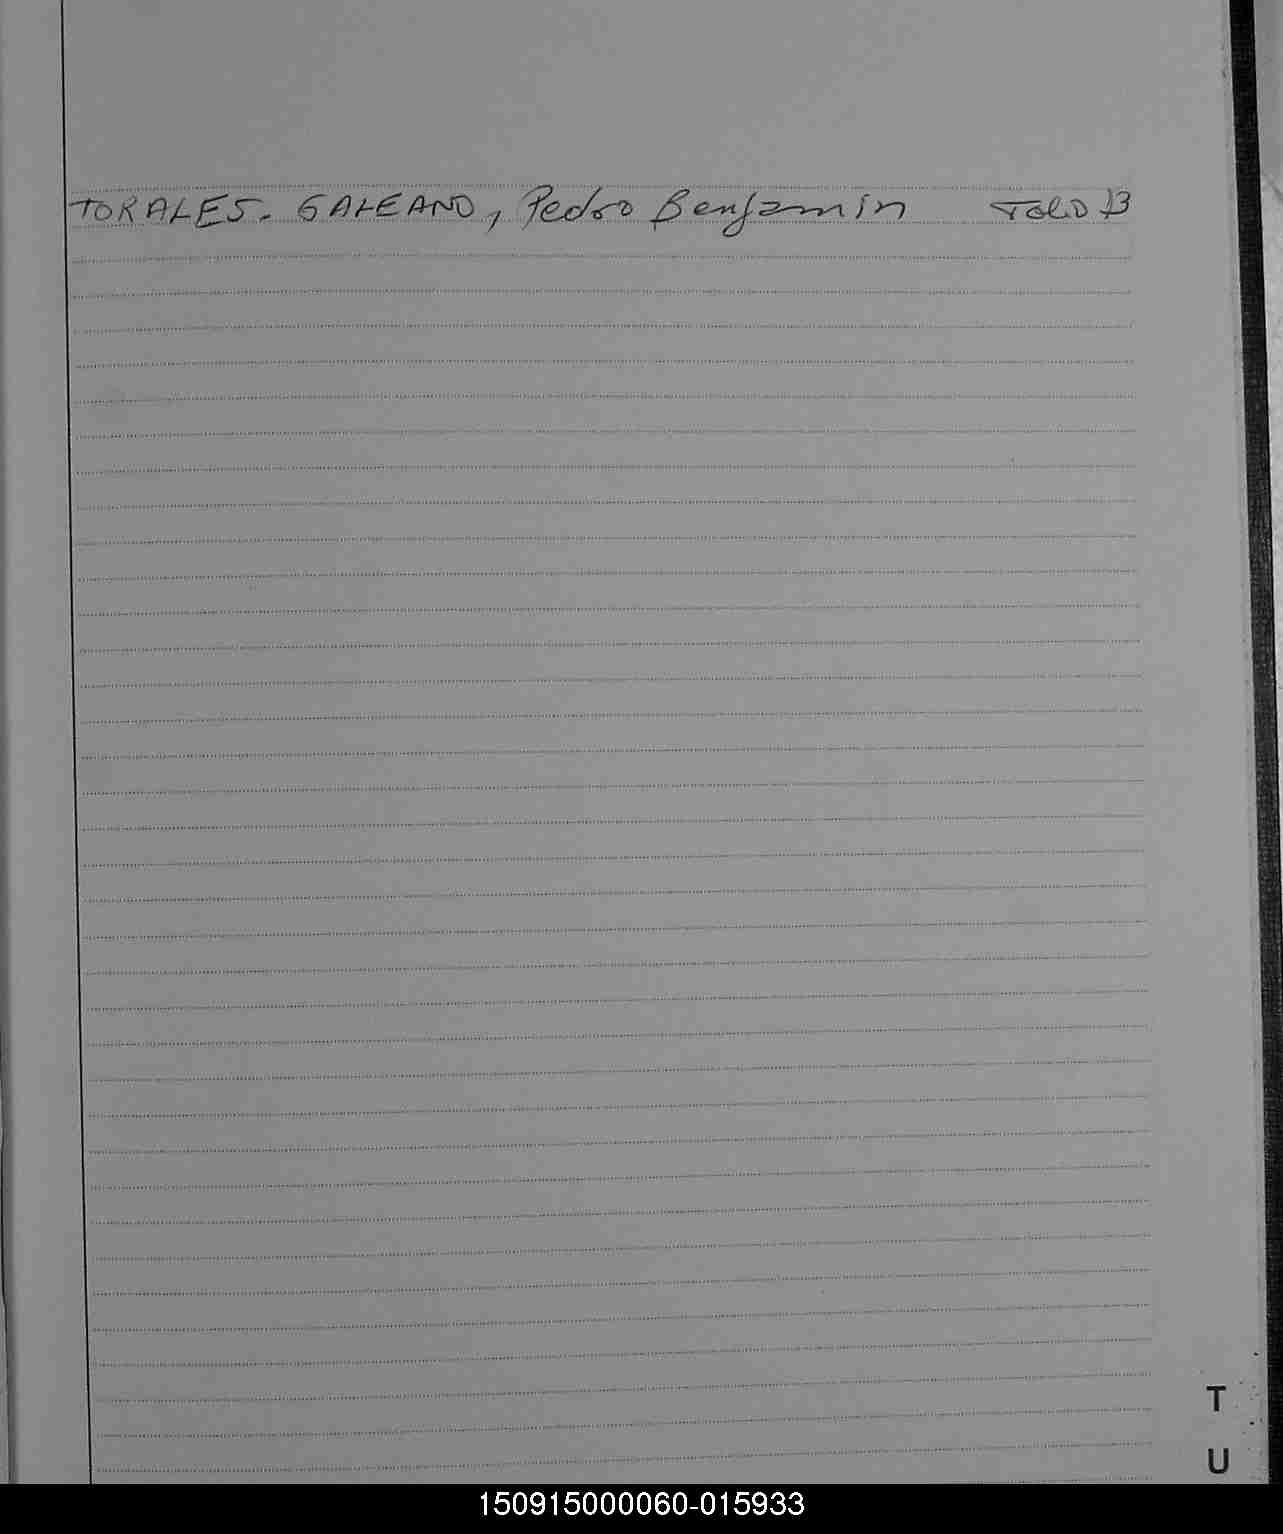 TORALES. GALEANO, Pedro Benjamin Folio 13
T
U
150915000060-015933